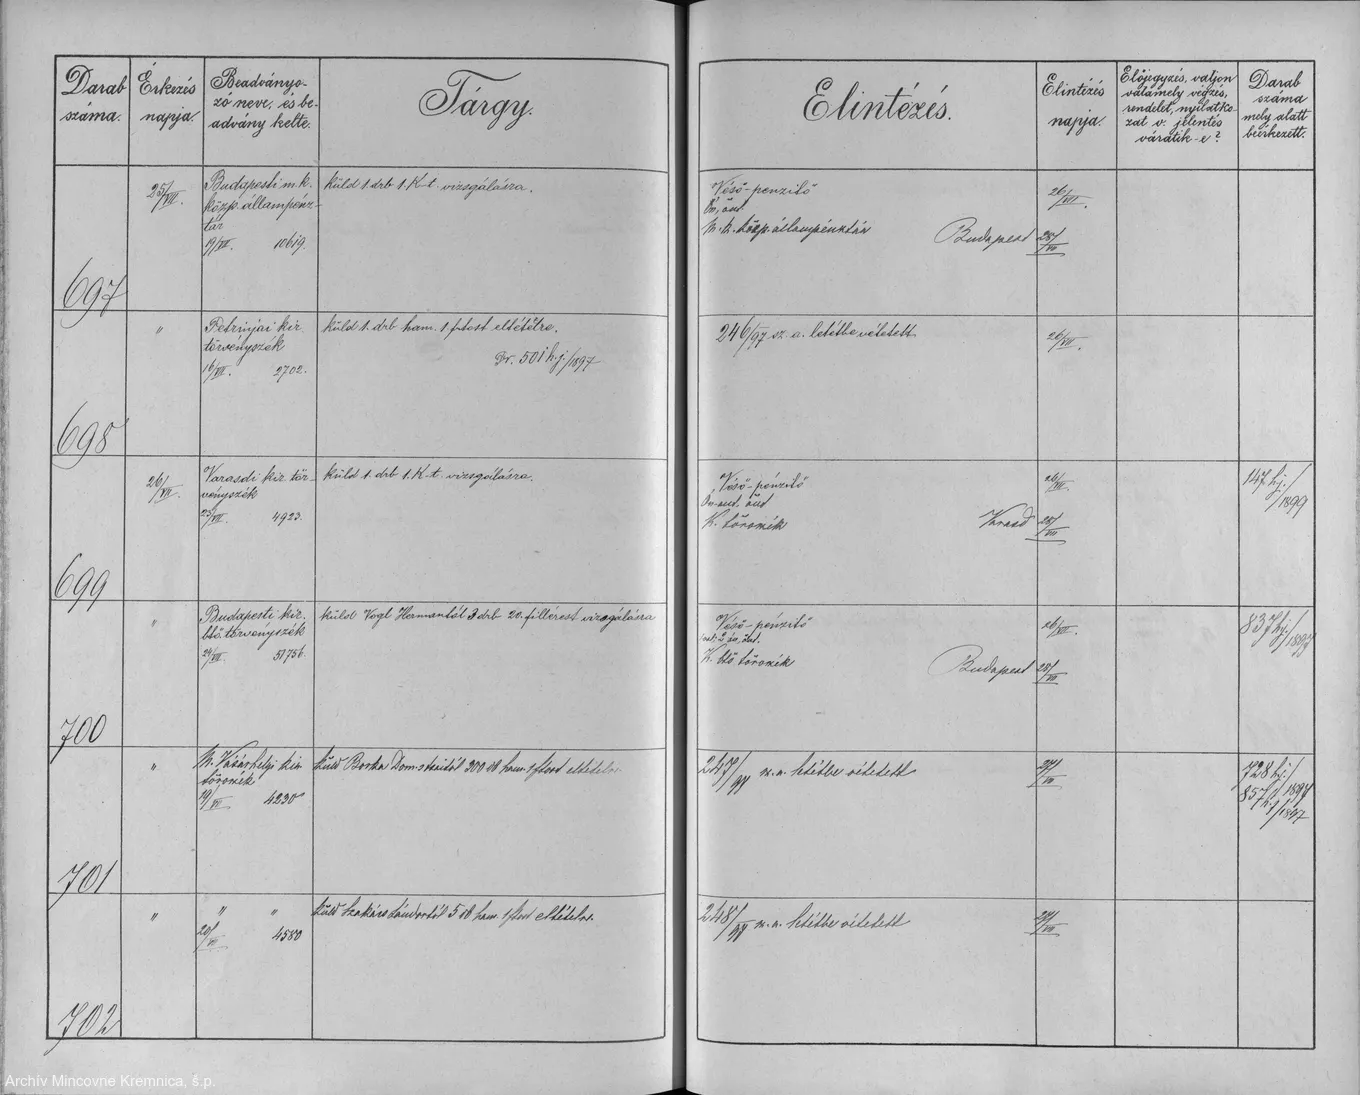 Darab száma.
Érkezés napja
Beadványo-
zó neve, és be-
advány kelte.
Tárgy.
Elintézés.
Elintézés napja.
Előjegyzés, valjon
valamely végzés,
rendelet, nyilatko-
zat v. jelentés
váratik-e?
Darab
száma
mely alatt
beérkezett.
697
25/VII.
Budapesti m. k.
közp. állampénz-
tár
19/VII. 10619.
küld 1 drb 1. K-t vizsgálásra.
Véső-pénzitő
M. k. közp. állampénztár Budapest
26/VII.
28/VII
698
"
Petrinjai kir.
törvényszék
16/VII. 2702.
küld 1. drb ham. 1 frtost eltételre.
Dr. 501 h.j./1897
246/97 sz. a. letétbe vétetett
26/VII.
699
26/VII.
Varasdi kir. tör-
vényszék
23/VII. 4923.
küld 1. drb 1. K-t. vizsgálásra.
Véső-pénzitő
K. törvszék Varasd
26/VII.
28/VII
147 h.j./1899
700
"
Budapesti kir.
btő. törvényszék
24/VII. 51756.
küld Vogl Hermantól 3 drb 20. fillérest vizsgálásra
Véső-pénzitő
K. btő törvszék Budapest
26/VII.
28/VII
837 h.j./1897
701
"
M. Vásárhelyi kir.
törvszék
19/VII 4230
küld Borka 300 db ham. 1 frtost eltételre
247/97 sz. a. letétbe vétetett
27/VII
728 h.j./1897
857 h.j./1897
702
"
" "
20/VII 4580
küld Szakács Sándortól 5 db ham. 1 frtost eltételre.
248/97 sz. a. letétbe vétetett
27/VII
Archív Mincovne Kremnica, š.p.